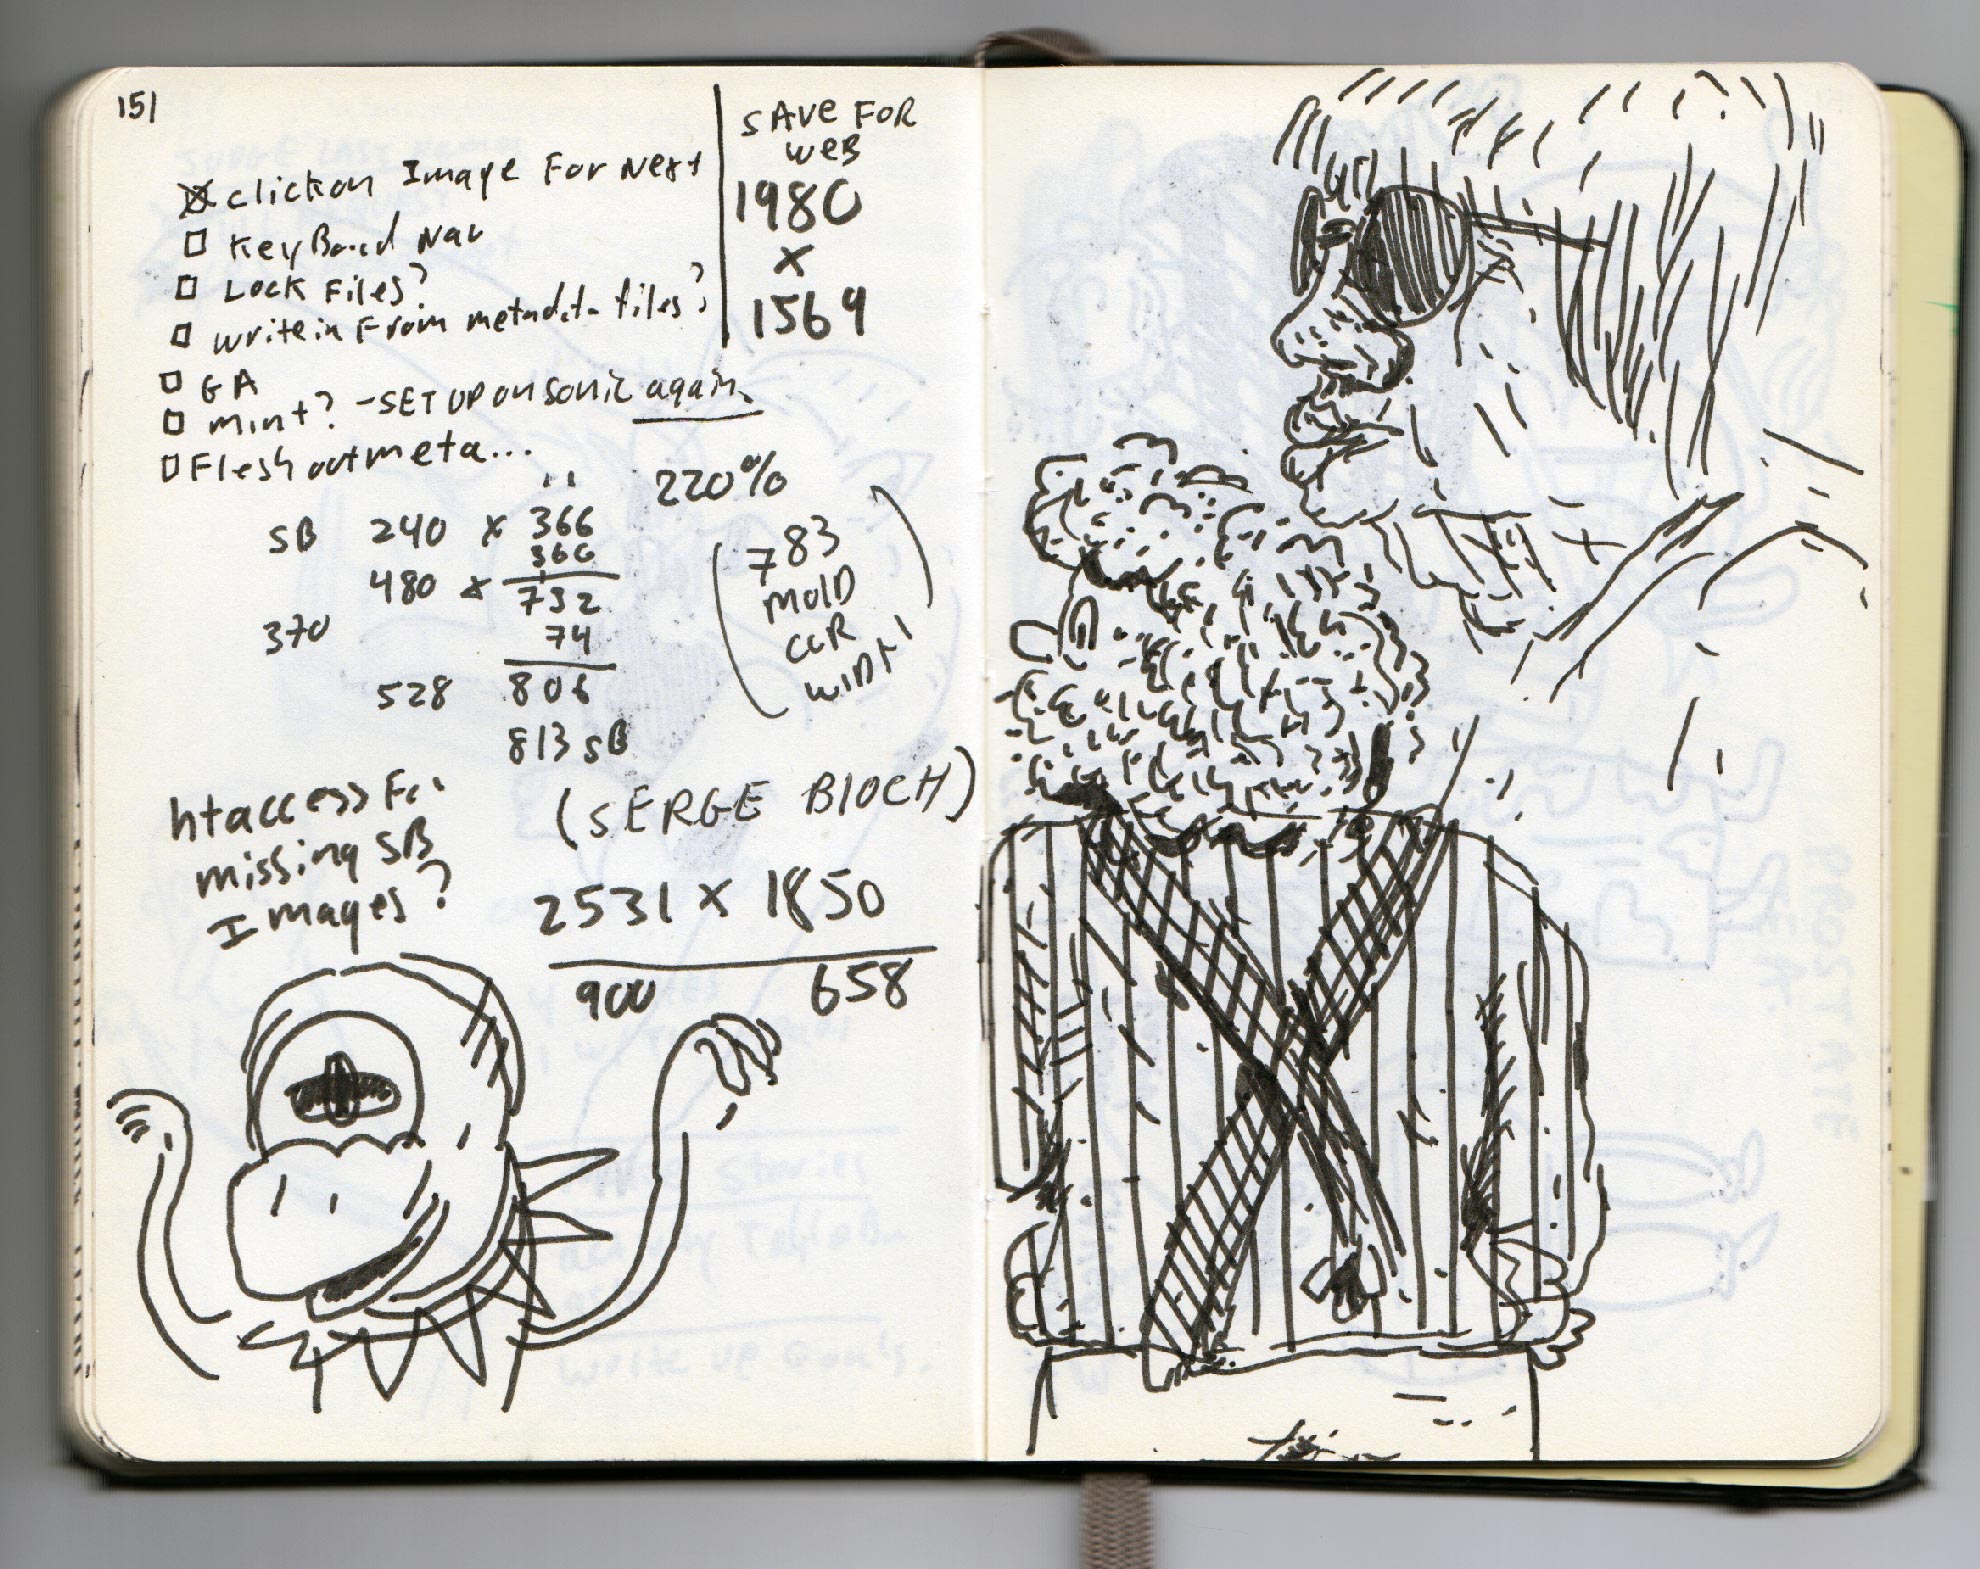 151
SAVE FOR
WEB
1980
x
1569
click on Image For Next
KeyBoard Nav
Lock Files?
write in From metadata files?
GA
mint? - SET UP on sonic again.
Flesh out meta...
220%
SB 240 x 366
366
480 x 732
370 74
528 806
813 SB
(783
MOLD
CCR
WIDTH)
htaccess For
missing SB
Images?
(SERGE BLOCH)
2531 x 1850
900 658